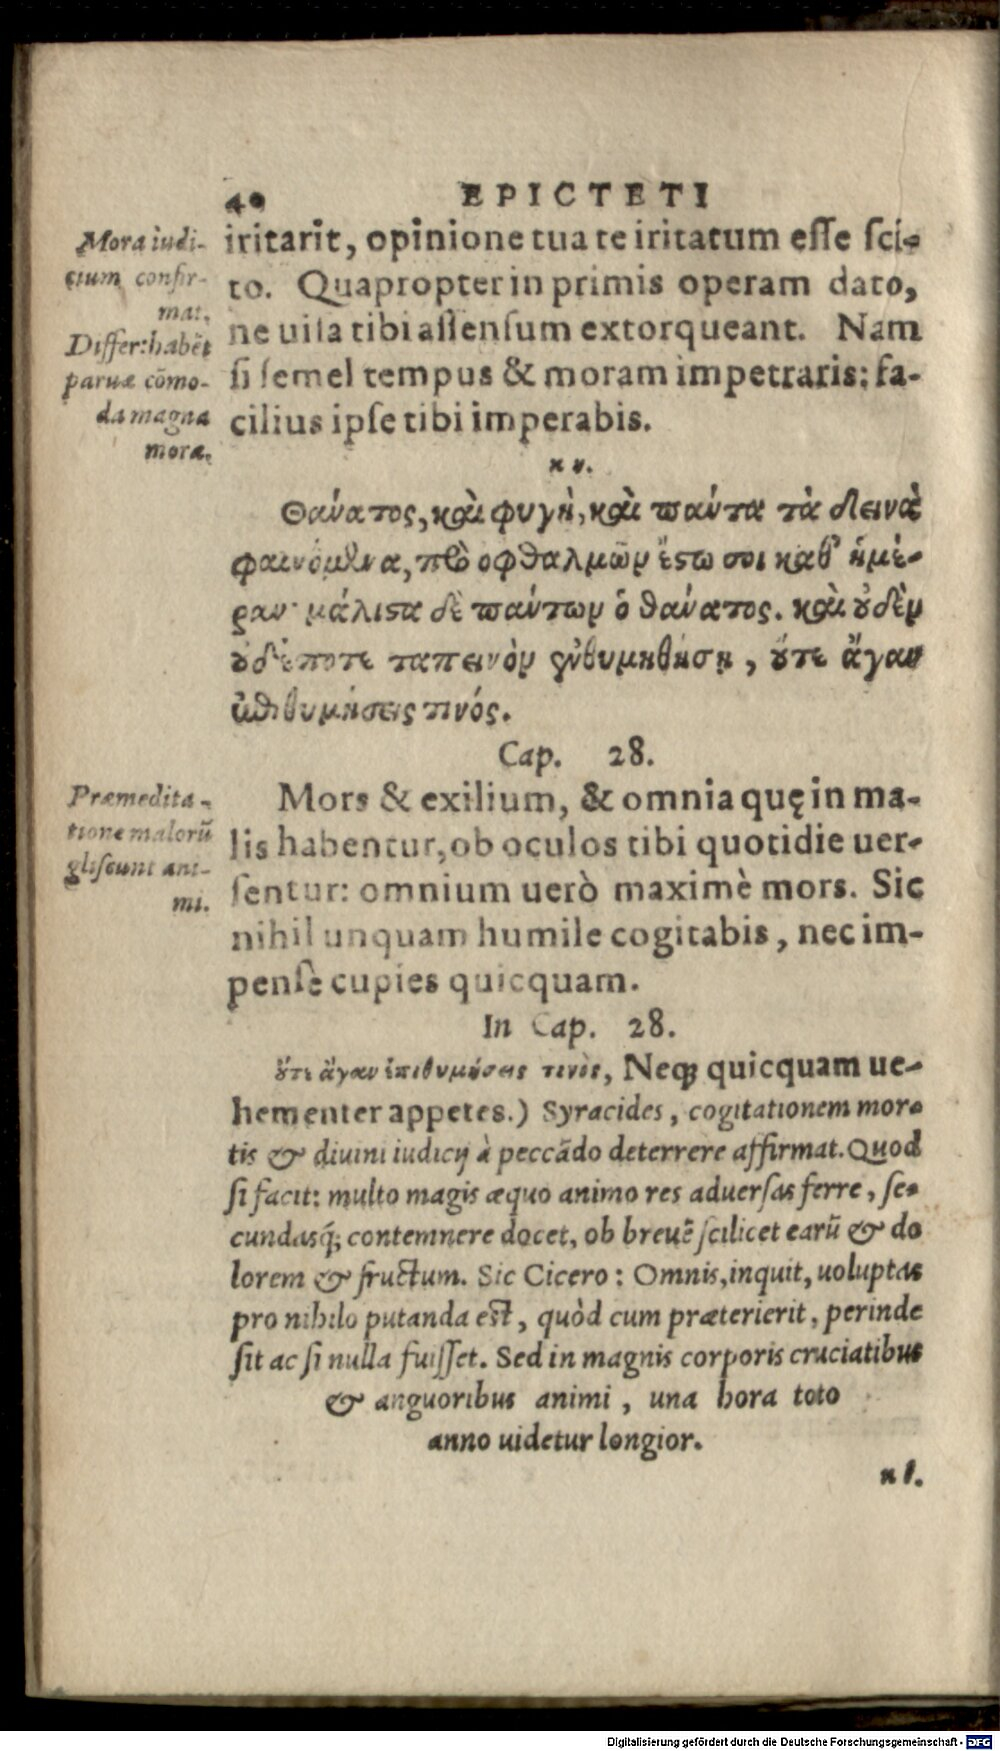 40 EPICTETI
Mora iudi-
cium confir-
mat.
Differ: habẽt
paruæ cõmo-
da magna
moræ.
iritarit, opinione tua te iritatum esse sci-
to. Quapropter in primis operam dato,
ne uisa tibi assensum extorqueant. Nam
si semel tempus & moram impetraris: fa-
cilius ipse tibi imperabis.
κ ε.
Θάνατος, καὶ φυγὴ, καὶ πάντα τὰ δεινὰ
φαινόμενα, πρὸ οφθαλμῶν ἔστω σοι καθ' ἡμέ-
ραν· μάλιστα δὲ πάντων ὁ θάνατος. καὶ οὐδὲν
οὐδέποτε ταπεινὸν ἐνθυμηθήσῃ, οὔτε ἄγαν
ἐπιθυμήσεις τινός.
Cap. 28.
Præmedita-
tione malorũ
gliscunt ani-
mi.
Mors & exilium, & omnia quę in ma-
lis habentur, ob oculos tibi quotidie uer-
sentur: omnium uerò maximè mors. Sic
nihil unquam humile cogitabis, nec im-
pensè cupies quicquam.
In Cap. 28.
οὔτε ἄγαν ἐπιθυμήσεις τινὸς, Neq; quicquam ue-
hementer appetes.) Syracides, cogitationem mor-
tis & diuini iudicij à peccãdo deterrere affirmat. Quod
si facit: multo magis æquo animo res aduersas ferre, se-
cundasq́; contemnere docet, ob breuẽ scilicet earũ & do
lorem & fructum. Sic Cicero: Omnis, inquit, uoluptas
pro nihilo putanda est, quòd cum præterierit, perinde
sit ac si nulla fuisset. Sed in magnis corporis cruciatibus
& anguoribus animi, una hora toto
anno uidetur longior.
κ ϛ.
Digitalisierung gefördert durch die Deutsche Forschungsgemeinschaft - DFG